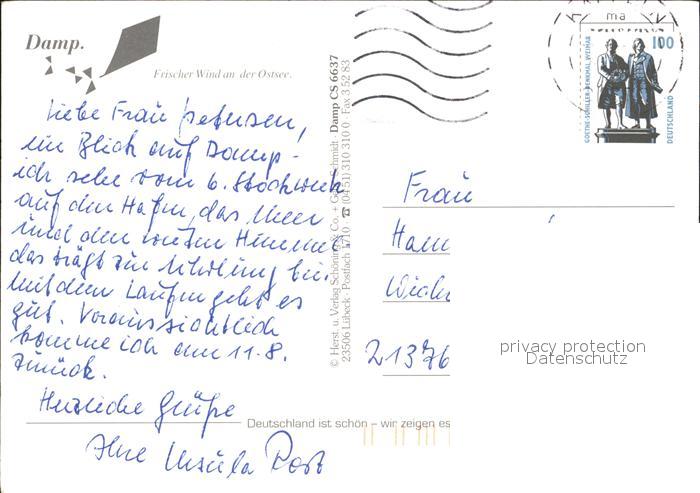 Damp.
Frischer Wind an der Ostsee.
Liebe Frau Petersen,
ein Blick auf Damp -
ich sehe vom 6. Stockwerk
auf den Hafen, das Meer
und den weiten Himmel
das trägt zur Erholung bei.
Mit dem Laufen geht es
gut. Voraussichtlich
komme ich am 11.8.
zurück.
Herzliche Grüße
Ihre Ursula Post
Deutschland ist schön – wir zeigen es
© Herst. u. Verlag Schöning & Co. + Schmidt · Damp CS 6637
23506 Lübeck · Postfach 1710 · ☎ (0451) 310 310 0 · Fax 3 52 83
ma
100
GOETHE-SCHILLER-DENKMAL WEIMAR
DEUTSCHLAND
Frau
21376
privacy protection
Datenschutz